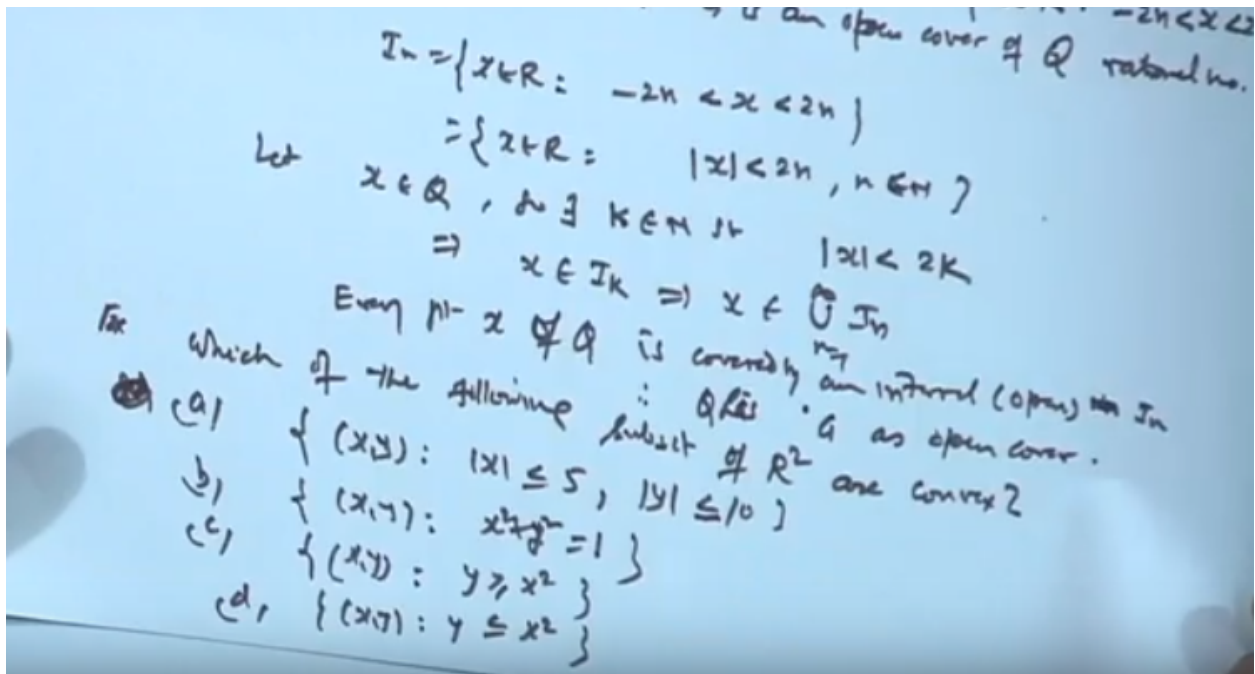 is an open cover of Q rational no. -2n<x<2
In = {x∈R : -2n < x < 2n}
= {x∈R : |x| < 2n, n∈N}
Let x∈Q, so ∃ K∈N st |x| < 2K
⇒ x ∈ IK ⇒ x ∈ ∞∪n=1 In
Every pt x ∈ Q is covered by an interval (open) In
∴ Q has G as open cover.
Ex Which of the following subset of R² are convex?
(a) {(x,y): |x| ≤ 5, |y| ≤ 10}
(b) {(x,y): x²+y²=1}
(c) {(x,y): y ≥ x²}
(d) {(x,y): y ≤ x²}